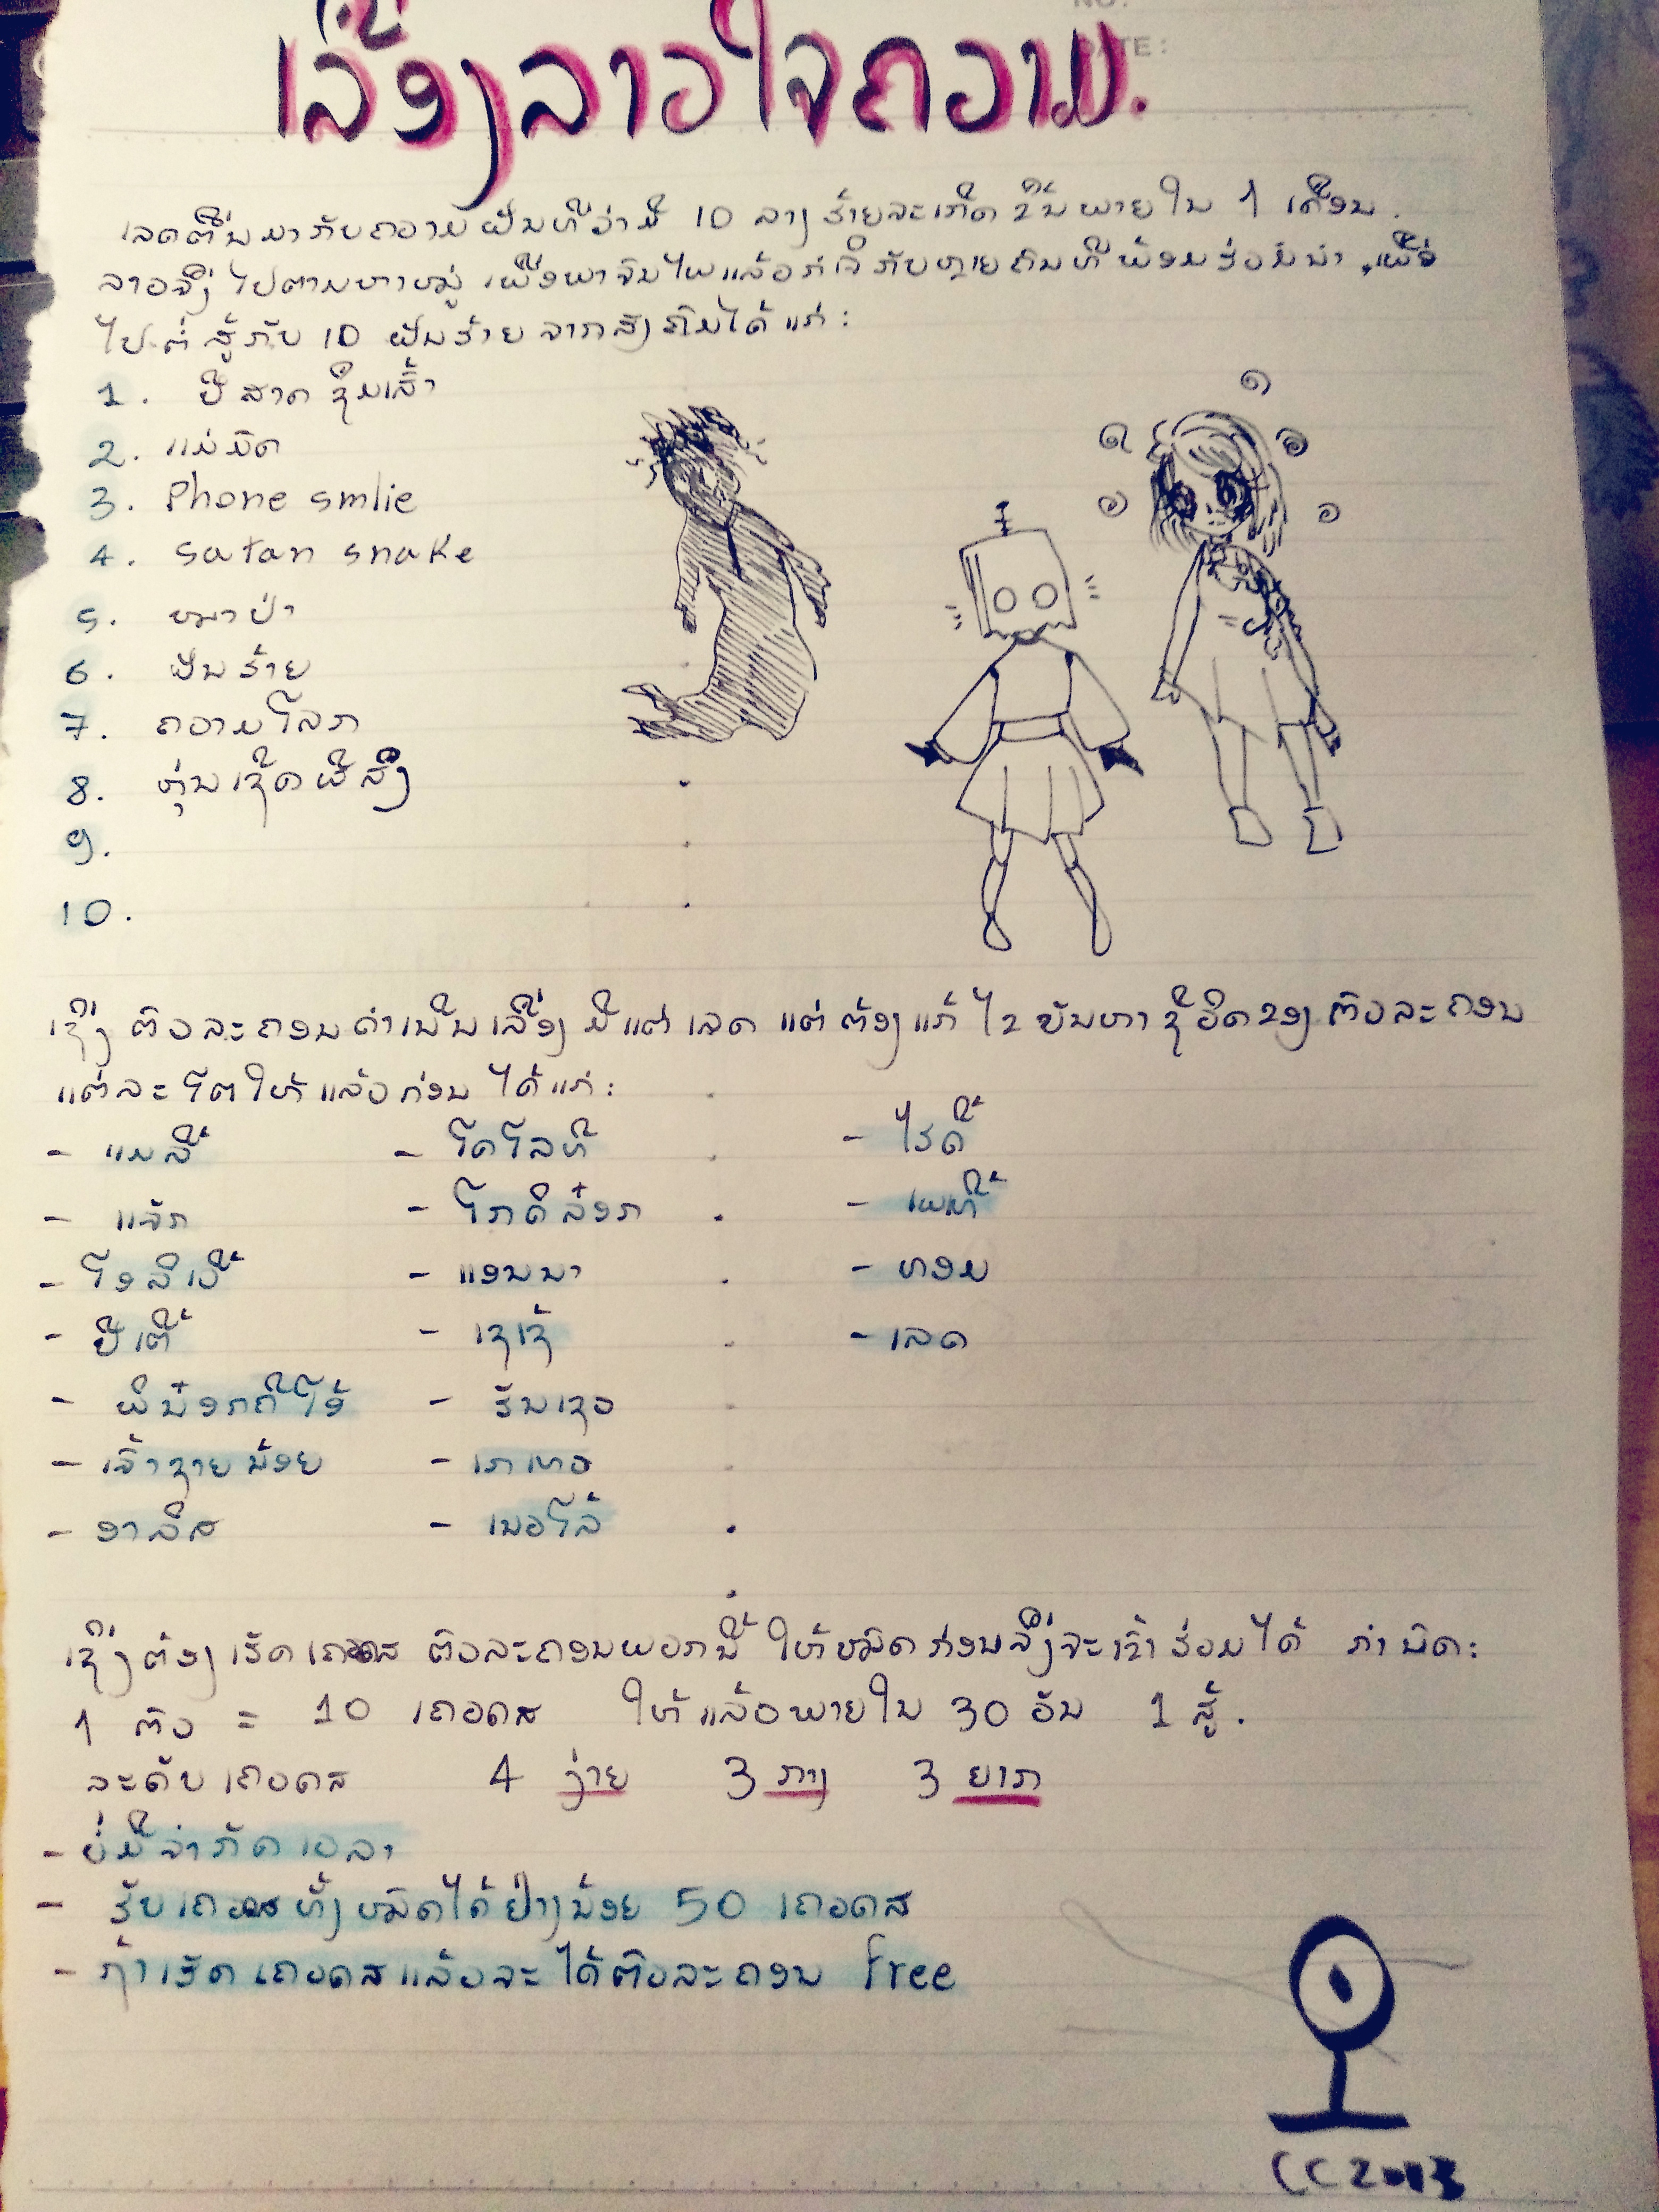 NO.
DATE :
ເລື່ອງລາວໃຈຄວາມ.
ເລດຕື່ນມາກັບຄວາມຝັນທີ່ວ່າມີ 10 ລາງຮ້າຍຈະເກີດຂື້ນພາຍໃນ 1 ເດືອນ.
ລາວຈຶ່ງໄປຕາມຫາໝູ່ ເພື່ອພາຈົນໄພແລ້ວກໍ່ເຈິກັບຫຼາຍຄົນທີ່ພ້ອມຮ່ວມນຳ ເພື່ອ
ໄປຕໍ່ສູ້ກັບ 10 ຝັນຮ້າຍ ຈາກສັງຄົມໄດ້ແກ່ :
1. ປີສາດຊຶມເສົ້າ
2. ແມ່ມົດ
3. Phone smlie
4. Satan snake
5. ໝາປ່າ
6. ຝັນຮ້າຍ
7. ຄວາມໂລກ
8. ຫຸ່ນເຊີດຜີສິງ
9.
10.
ເຊິ່ງ ຕົວລະຄອນດຳເນີນເລື່ອງມີແຕ່ ເລດ ແຕ່ຕ້ອງແກ້ໄຂບັນຫາຊີວິດຂອງຕົວລະຄອນ
ແຕ່ລະໂຕໃຫ້ແລ້ວກ່ອນ ໄດ້ແກ່ :
- ແມລີ້ - ໂດໂລທີ - ໄຮດີ້
- ແຈັກ - ໂກດິລ໋ອກ - ເພທີ້
- ໂອລິເວີ້ - ແອນນາ - ທອມ
- ປີເຕີ້ - ເຊເຊ້ - ເລດ
- ພິນ໋ອກຄີໂອ້ - ຮັນເຊວ
- ເຈົ້າຊາຍນ້ອຍ - ເກເທວ
- ອາລິສ - ເນວໂລ້
ເຊິ່ງຕ້ອງເຮັດເຄວດສ ຕົວລະຄອນພວກນີ້ ໃຫ້ໝົດກ່ອນລຶ່ງຈະເຂົ້າຮ່ວມໄດ້ ກຳນົດ :
1 ຕົວ = 10 ເຄວດສ ໃຫ້ແລ້ວພາຍໃນ 30 ວັນ 1 ສູ້.
ລະດັບເຄວດສ 4 ງ່າຍ 3 ກາງ 3 ຍາກ
- ບໍ່ມີຈຳກັດເວລາ
- ຮັບເຄວດສທັ້ງໝົດໄດ້ຢ່າງນ້ອຍ 50 ເຄວດສ
- ຖ້າເຮັດເຄວດສແລ້ວຈະໄດ້ຕົວລະຄອນ Free